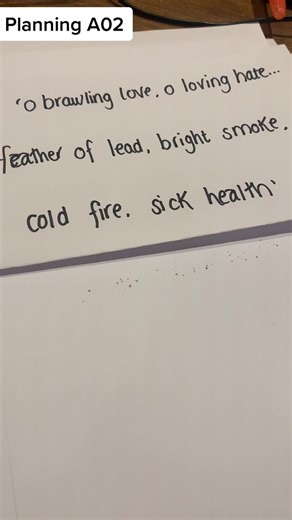 Planning A02
'o brawling love, o loving hate...
feather of lead, bright smoke,
cold fire, sick health'